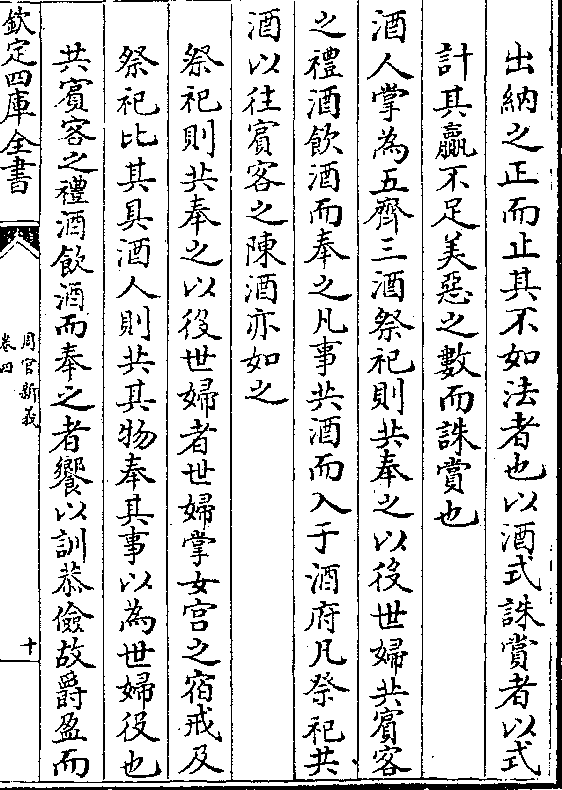 出納之正而止其不如法者也以酒式誅賞者以式
計其贏不足美惡之數而誅賞也
酒人掌為五齊三酒祭祀則共奉之以役世婦共賓客
之禮酒飲酒而奉之凡事共酒而入于酒府凡祭祀共
酒以往賓客之陳酒亦如之
祭祀則共奉之以役世婦者世婦掌女宮之宿戒及
祭祀比其具酒人則共其物奉其事以為世婦役也
共賓客之禮酒飲酒而奉之者饗以訓恭儉故爵盈而
欽定四庫全書
周官新義
卷四
十